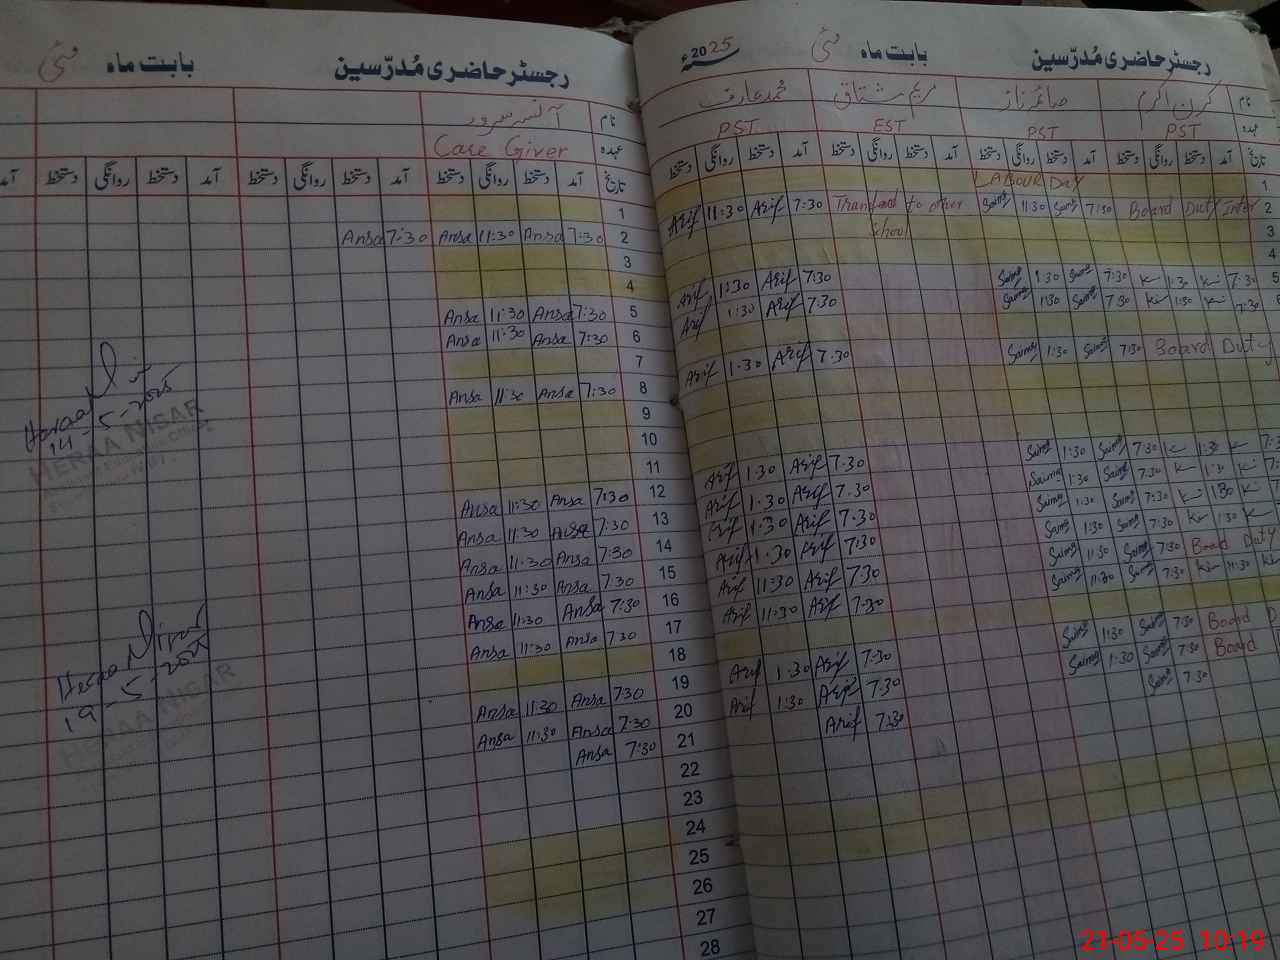 رجسٹر حاضری مُدرّسین بابت ماہ مئی 2025ء
نام کرن اکرم صائمہ ناز مریم مشتاق محمد عارف
عہدہ PST PST EST PST
تاریخ آمد دستخط روانگی دستخط آمد دستخط روانگی دستخط آمد دستخط روانگی دستخط آمد دستخط روانگی دستخط
1 LABOUR Day
2 Board Duty Inter Saima 11:30 Saima 7:30 to other Arif 11:30 Arif 7:30
school
3
4
5 7:30 1:30 Saima 1:30 Saima 7:30 Arif 1:30 Arif 7:30
6 7:30 1:30 Saima 1:30 Saima 7:30 Arif 1:30 Arif 7:30
Board Duty Saima 1:30 Saima 7:30 Arif 1:30 Arif 7:30
1:30 Saima 1:30 Saima 7:30 Arif 1:30 Arif 7:30
1:30 Saima 1:30 Saima 7:30 Arif 1:30 Arif 7:30
1:30 Saima 1:30 Saima 7:30 Arif 1:30 Arif 7:30
1:30 Saima 1:30 Saima 7:30 Arif 1:30 Arif 7:30
Board Duty Saima 11:30 Saima 7:30 Arif 11:30 Arif 7:30
11:30 Saima 11:30 Saima 7:30 Arif 11:30 Arif 7:30
Board Saima 1:30 Saima 7:30 Arif 1:30 Arif 7:30
Board Saima 1:30 Saima 7:30 Arif 1:30 Arif 7:30
Saima 7:30 Arif 7:30
رجسٹر حاضری مُدرّسین بابت ماہ مئی
نام آنسہ سرور
عہدہ Care Giver
تاریخ آمد دستخط روانگی دستخط آمد دستخط روانگی دستخط آمد دستخط روانگی دستخط آمد
1
2 Ansa 7:30 Ansa 11:30 Ansa 7:30
3
4
5 Ansa 11:30 Ansa 7:30
6 Ansa 11:30 Ansa 7:30
7
8 Ansa 11:30 Ansa 7:30
9
10
11
12 Ansa 11:30 Ansa 7:30
13 Ansa 11:30 Ansa 7:30
14 Ansa 11:30 Ansa 7:30
15 Ansa 11:30 Ansa 7:30
16 Ansa 11:30 Ansa 7:30
17 Ansa 11:30 Ansa 7:30
18
19 Ansa 11:30 Ansa 7:30
20 Ansa 11:30 Ansa 7:30
21 Ansa 7:30
22
23
24
25
26
27
28
14-5-2025
HERAA NISAR
Heraa Nisar
19-5-2025
HERAA NISAR
21-05-25 10:19